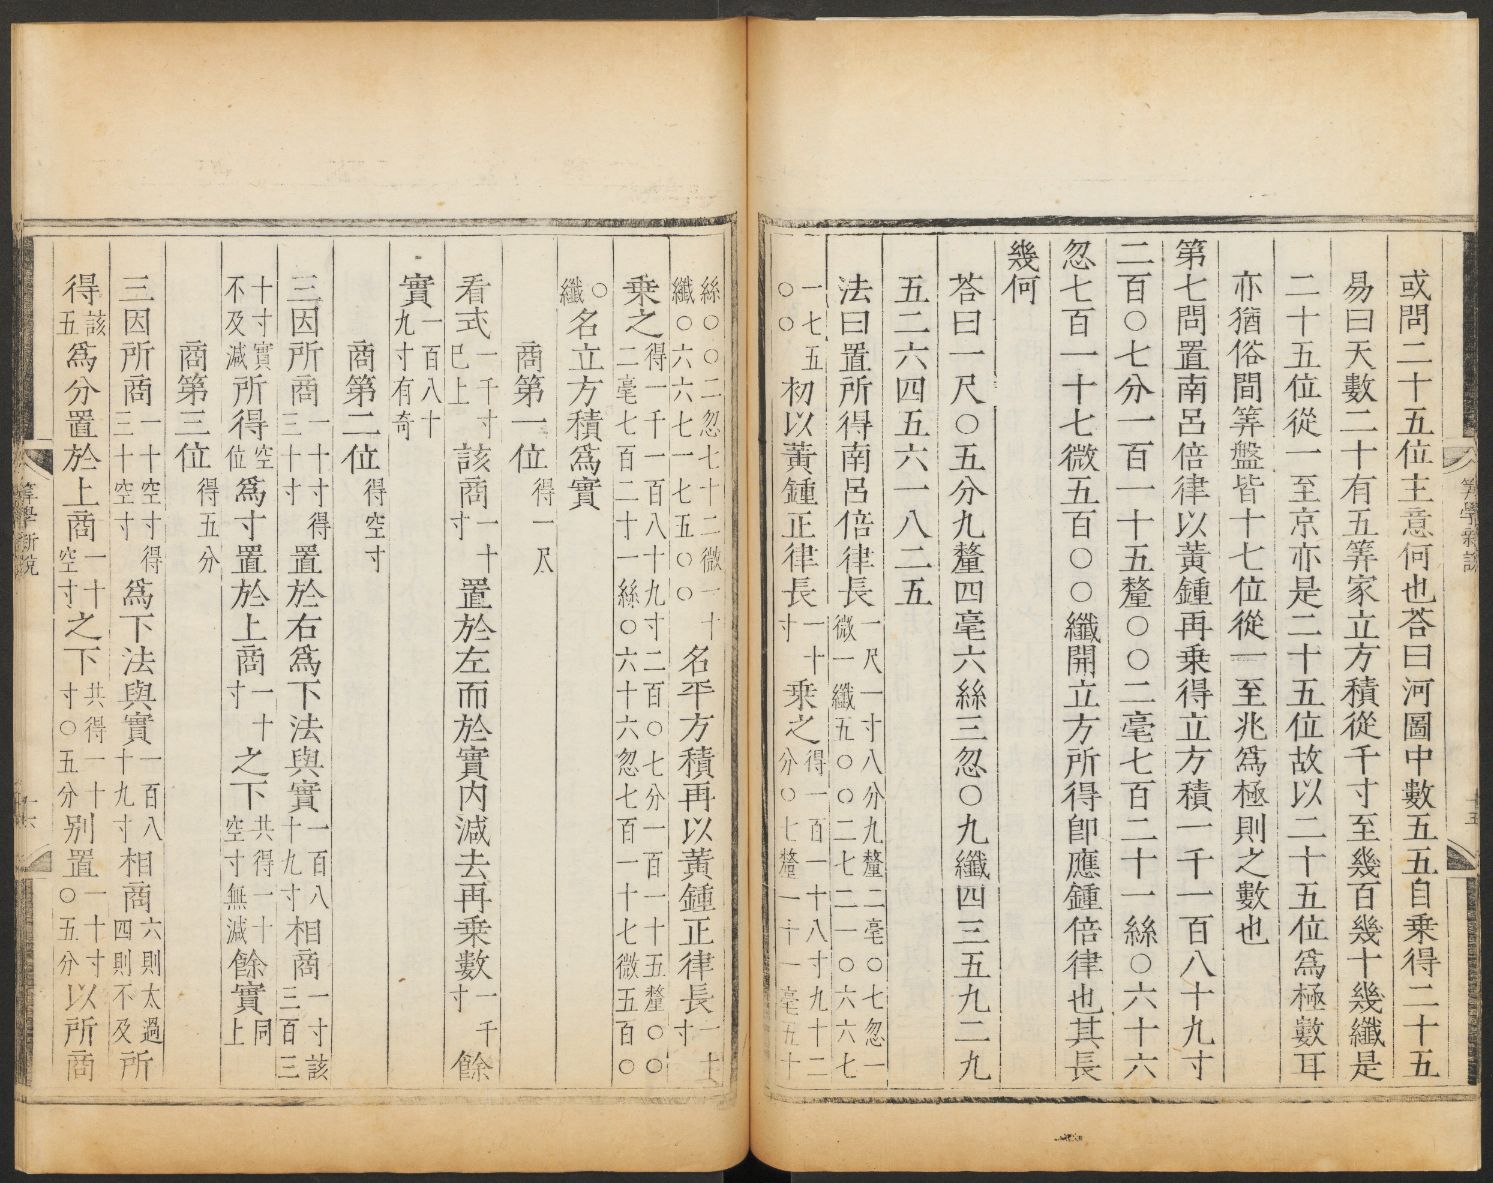 或問二十五位主意何也荅曰河圖中數五五自乗得二十五
易曰天數二十有五筭家立方積從千寸至幾百幾十幾纖是
二十五位從一至京亦是二十五位故以二十五位爲極數耳
亦猶俗間筭盤皆十七位從一至兆爲極則之數也
第七問置南呂倍律以黃鍾再乗得立方積一千一百八十九寸
二百〇七分一百一十五釐〇〇二毫七百二十一絲〇六十六
忽七百一十七微五百〇〇纖開立方所得卽應鍾倍律也其長
幾何
荅曰一尺〇五分九釐四毫六絲三忽〇九纖四三五九二九
五二六四五六一八二五
法曰置所得南呂倍律長一尺一寸八分九釐二毫〇七忽一微一纖五〇〇二七二一〇六六七
一七五〇〇初以黃鍾正律長一十寸乗之得一百一十八寸九十二分〇七釐一十一毫五十
絲〇〇二忽七十二微一十纖〇六六七一七五〇〇名平方積再以黃鍾正律長一十寸
乗之得一千一百八十九寸二百〇七分一百一十五釐〇〇二毫七百二十一絲〇六十六忽七百一十七微五百〇
〇纖名立方積爲實
商第一位得一尺
看式一千寸已上該商一十寸置於左而於實内減去再乗數一千寸餘
實一百八十九寸有奇
商第二位得空寸
三因所商一十寸得三十寸置於右爲下法與實一百八十九寸相商一寸該三百三
十寸實不及减所得空位爲寸置於上商一十寸之下共得一十空寸無減餘實同上
商第三位得五分
三因所商一十空寸得三十空寸爲下法與實一百八十九寸相商六則太過四則不及所
得該五爲分置於上商一十空寸之下共得一十寸〇五分别置一十寸〇五分以所商
筭學新說
十五
筭學新說
十六